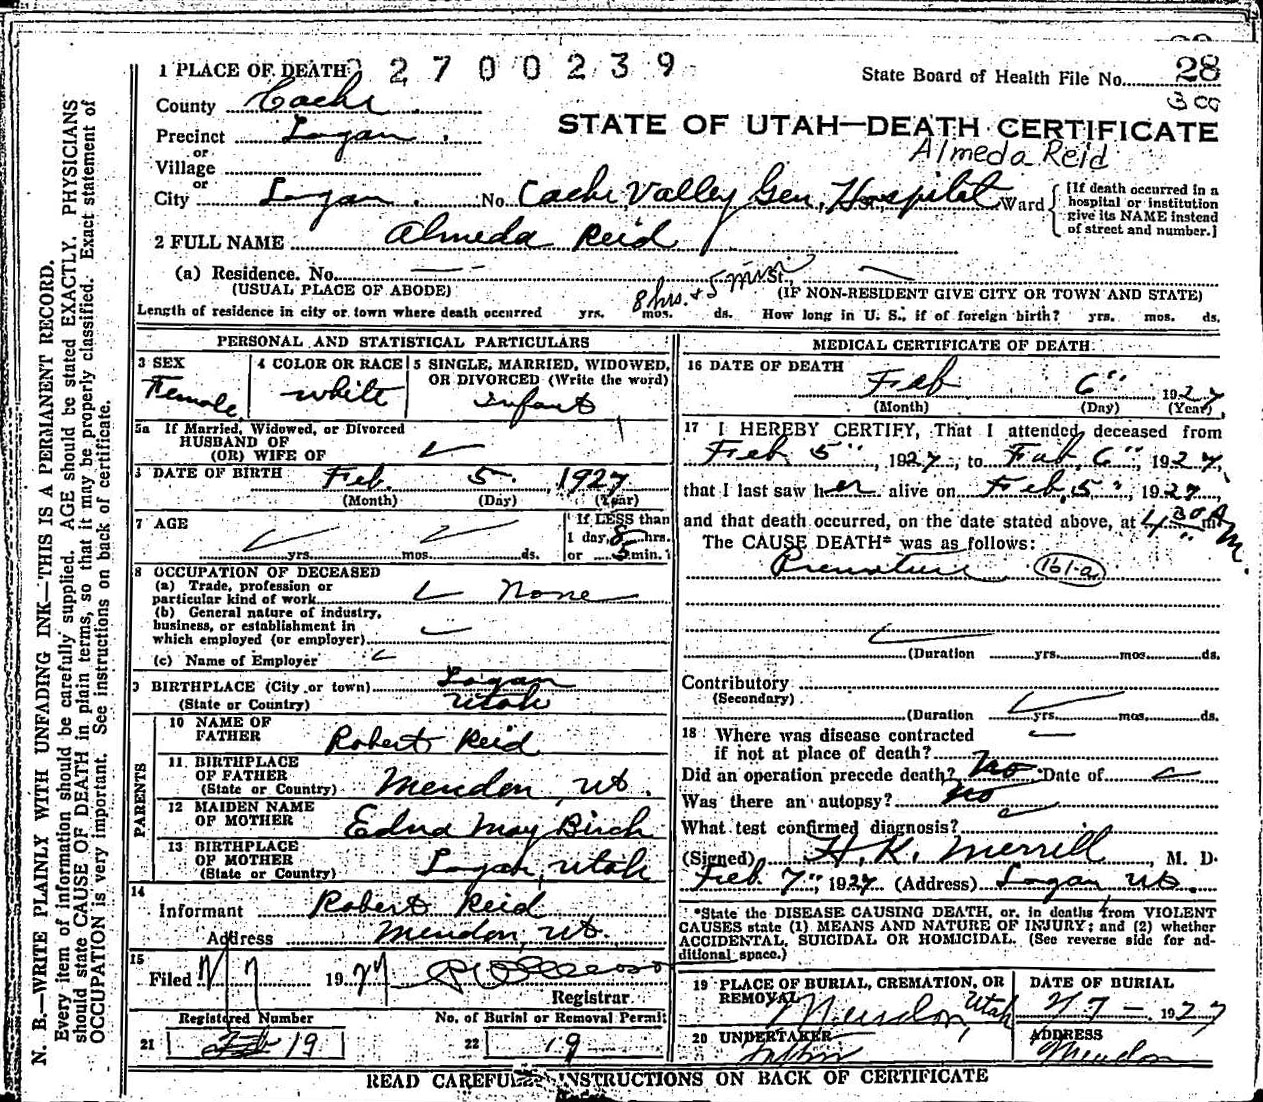 1 PLACE OF DEATH 2700239
State Board of Health File No. 28
300
County Cache
Precinct Logan
STATE OF UTAH—DEATH CERTIFICATE
Almeda Reid
or
Village
or
City Logan No. Cache Valley Gen. Hospital Ward
[If death occurred in a hospital or institution give its NAME instead of street and number.]
2 FULL NAME Almeda Reid
(a) Residence. No. St.,
(USUAL PLACE OF ABODE) (IF NON-RESIDENT GIVE CITY OR TOWN AND STATE)
8 hrs. + 5 min
Length of residence in city or town where death occurred yrs. mos. ds. How long in U. S., if of foreign birth? yrs. mos. ds.
PERSONAL AND STATISTICAL PARTICULARS
3 SEX Female
4 COLOR OR RACE white
5 SINGLE, MARRIED, WIDOWED, OR DIVORCED (Write the word) Infant
5a If Married, Widowed, or Divorced
HUSBAND OF
(OR) WIFE OF
DATE OF BIRTH Feb. 5, 1927
(Month) (Day) (Year)
7 AGE yrs. mos. ds.
If LESS than
1 day, 8 hrs.
or 5 min.
8 OCCUPATION OF DECEASED
(a) Trade, profession or
particular kind of work None
(b) General nature of industry,
business, or establishment in
which employed (or employer)
(c) Name of Employer
9 BIRTHPLACE (City or town) Logan
(State or Country) Utah
PARENTS
10 NAME OF FATHER Robert Reid
11 BIRTHPLACE OF FATHER
(State or Country) Mendon, Ut.
12 MAIDEN NAME OF MOTHER Edna May Birch
13 BIRTHPLACE OF MOTHER
(State or Country) Logan, Utah
14
Informant Robert Reid
Address Mendon, Ut.
15
Filed 2/7 1927
Registrar.
Registered Number
No. of Burial or Removal Permit
21 19
22 19
MEDICAL CERTIFICATE OF DEATH
16 DATE OF DEATH
Feb 6" 1927
(Month) (Day) (Year)
17 I HEREBY CERTIFY, That I attended deceased from
Feb 5", 1927, to Feb, 6", 1927,
that I last saw her alive on Feb, 5", 1927,
and that death occurred, on the date stated above, at 4 30 A m M.
The CAUSE DEATH* was as follows:
Premature 161-a
(Duration yrs. mos. ds.
Contributory
(Secondary)
(Duration yrs. mos. ds.
18 Where was disease contracted
if not at place of death?
Did an operation precede death? No Date of
Was there an autopsy? No
What test confirmed diagnosis?
(Signed) H. K. Merrill, M. D.
Feb. 7", 1927 (Address) Logan Ut.
*State the DISEASE CAUSING DEATH, or, in deaths from VIOLENT
CAUSES state (1) MEANS AND NATURE OF INJURY; and (2) whether
ACCIDENTAL, SUICIDAL OR HOMICIDAL. (See reverse side for ad-
ditional space.)
19 PLACE OF BURIAL, CREMATION, OR
REMOVAL Mendon, Utah
DATE OF BURIAL
2/7 — 1927
20 UNDERTAKER
ADDRESS
Mendon
READ CAREFULLY INSTRUCTIONS ON BACK OF CERTIFICATE
N. B.—WRITE PLAINLY WITH UNFADING INK—THIS IS A PERMANENT RECORD.
Every item of information should be carefully supplied. AGE should be stated EXACTLY. PHYSICIANS
should state CAUSE OF DEATH in plain terms, so that it may be properly classified. Exact statement of
OCCUPATION is very important. See instructions on back of certificate.